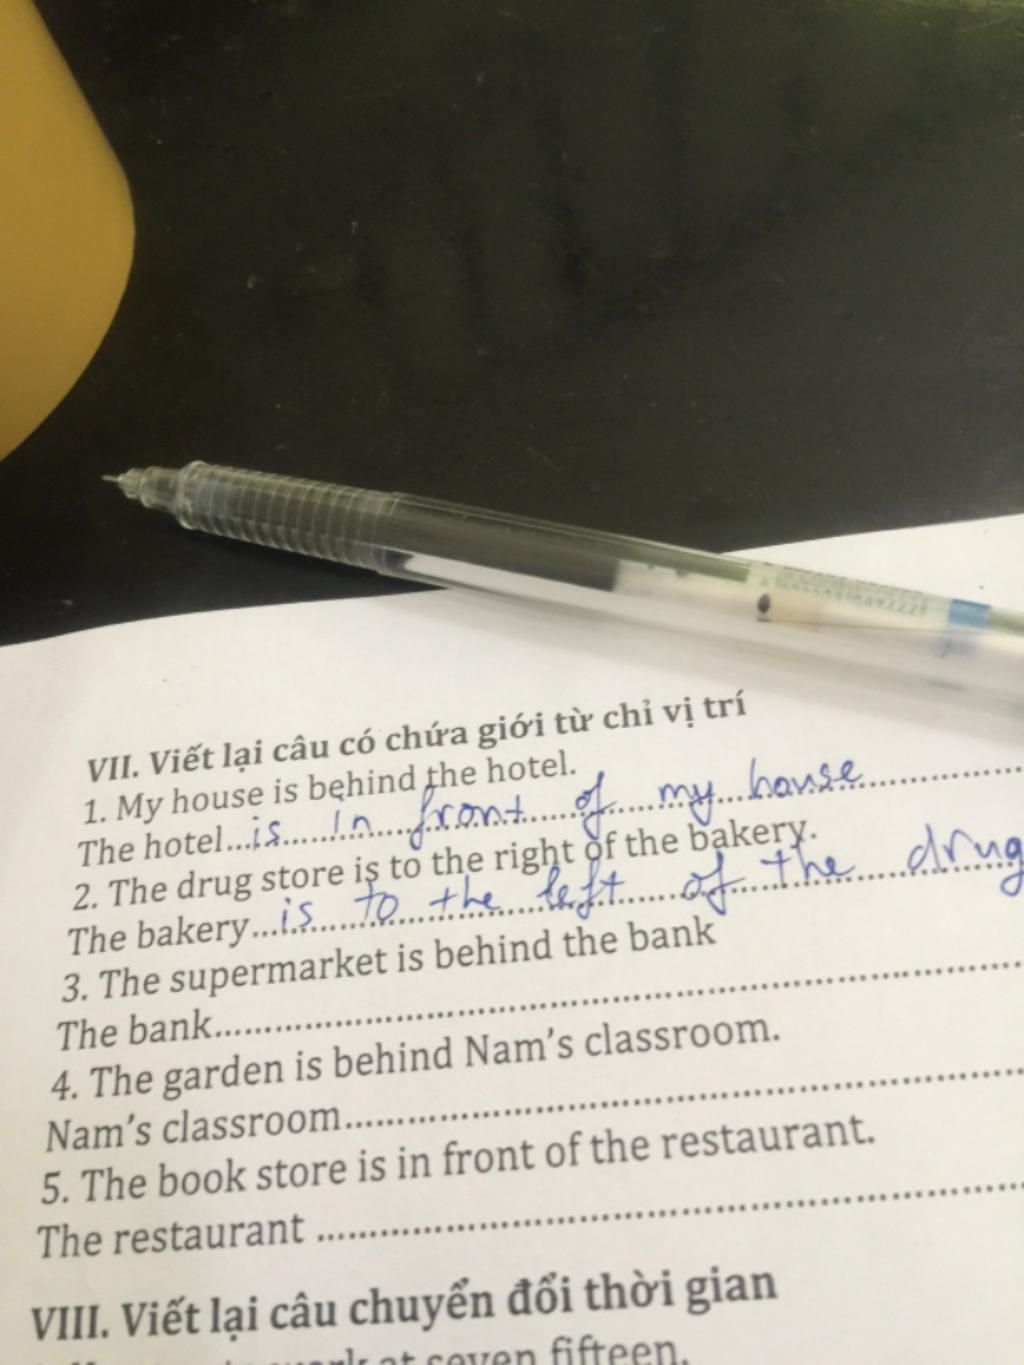 VII. Viết lại câu có chứa giới từ chỉ vị trí
1. My house is behind the hotel.
The hotel...is in front of my house
2. The drug store is to the right of the bakery.
The bakery...is to the left of the drug
3. The supermarket is behind the bank
The bank
4. The garden is behind Nam's classroom.
Nam's classroom
5. The book store is in front of the restaurant.
The restaurant
VIII. Viết lại câu chuyển đổi thời gian
work at seven fifteen.